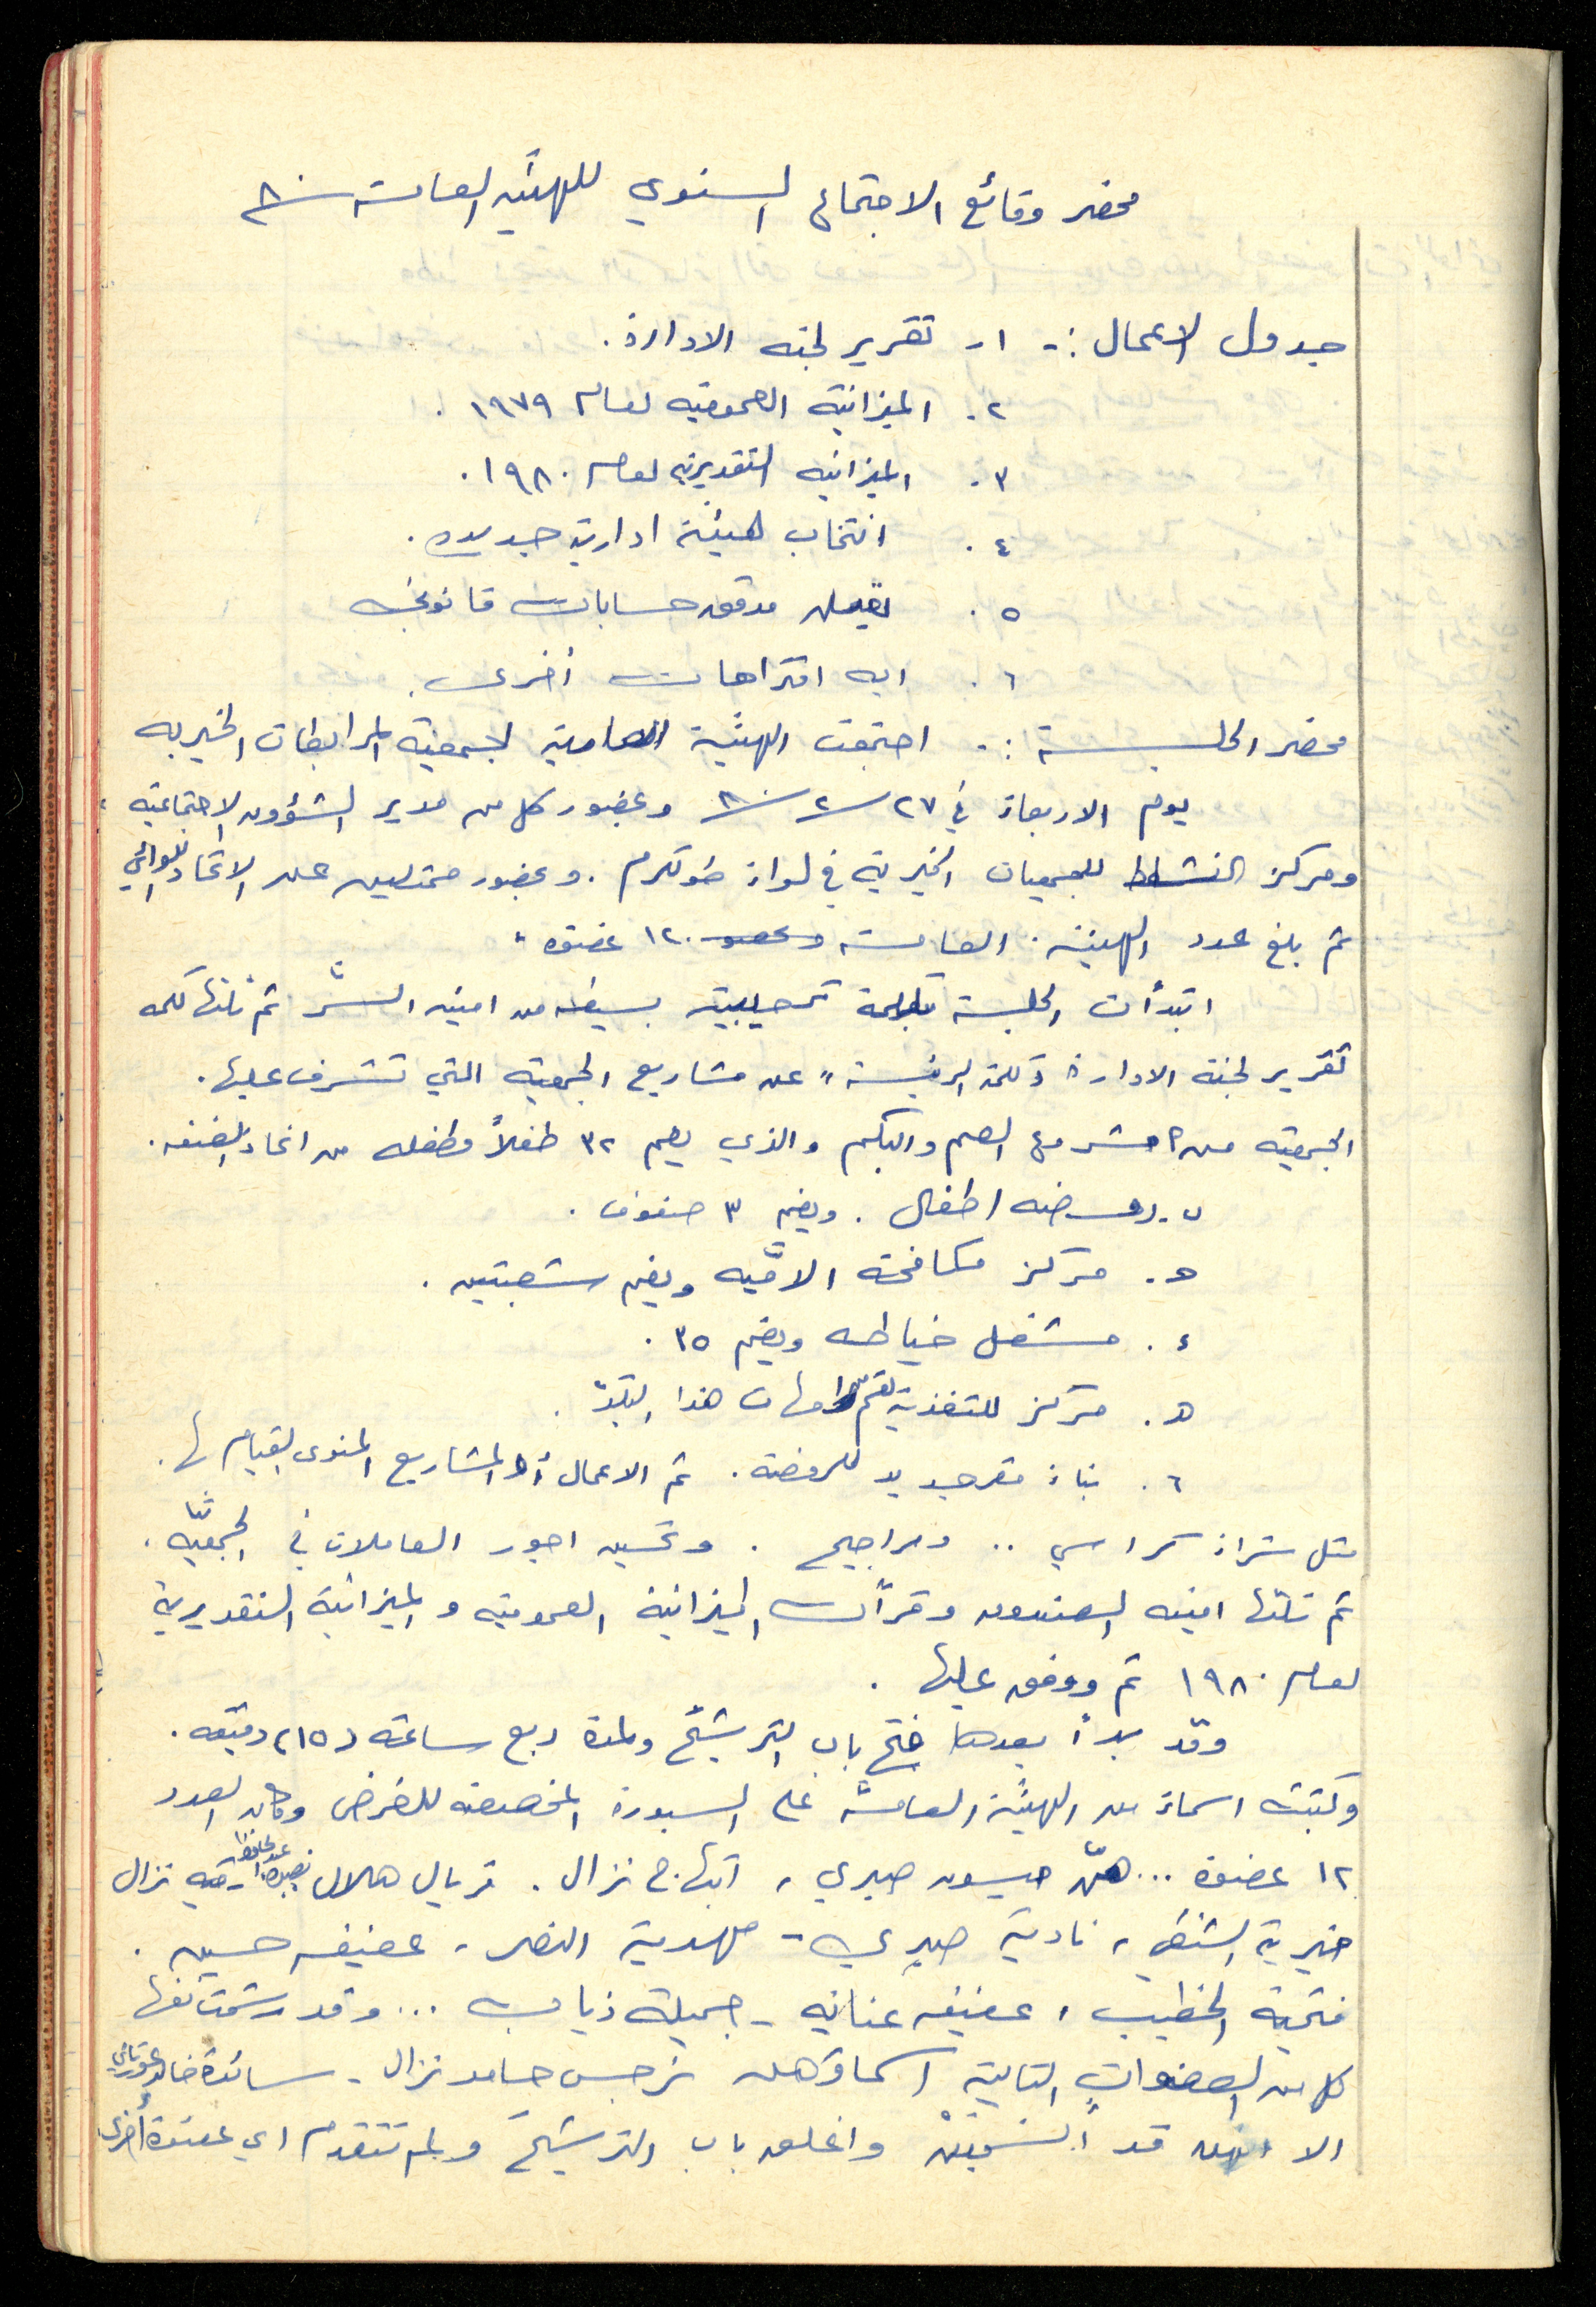 محضر وقائع الاجتماع السنوي للهيئه العامة ٨٠
جدول الاعمال :- ١- تقرير لجنه الادارة .
٢. الميزانية العموميه لعام ١٩٧٩ .
٣. الميزانيه التقديريه لعام ١٩٨٠ .
٤. انتخاب هيئة ادارية جديده .
٥. مدقق حسابات قانوني
٦. ايه اقتراحات أخرى .
محضر الجلسة :- اجتمعت الهيئة العامة لجمعية المرابطات الخيريه
يوم الاربعاء في ٢٧/٢/٨٠ وبحضور كل من مدير الشؤون الاجتماعية
ومركز النشاط للجمعيات الخيرية في لواء طولكرم . وبحضور ممثلين عن الاتحاد اللوائي
ثم بلغ عدد الهيئة العامة ١٢٠ عضوه
ابتدأت الجلسة بكلمة ترحيبية بسيطه من امينه السّر ثم تلتها كلمه
تقرير لجنة الادارة وكلمة الرئيسة " عن مشاريع الجمعيه التي تشرف عليها .
الجمعيه من ١ مشروع الصم والبكم والذي يضم ٣٢ طفلاً وطفله من انحاء الضفه .
٢- روضه اطفال . ويضم ٣ صفوف .
٣. مركز مكافحة الامّيه ويضم شعبتين .
٤. مشغل خياطه ويضم ٣٥ .
٥. مركز للتغذية تضم امهات هذا البلد .
٦. بناء مقر جديد للروضة . ثم الاعمال أو المشاريع المنوى القيام بها .
مثل شراء كراسي .. ومراجيح . وتحسين اجور العاملات في الجمعيّه .
ثم تلتها امينه الصندوق وقرأت الميزانية العموميه والميزانية التقديرية
لعام ١٩٨٠ ثم ووفق عليها .
وقد بدأ بعدها فتح باب الترشيح ولمدة ربع ساعة (١٥) دقيقه .
وكتبت اسماء من الهيئة العامة على السبورة المخصصه للغرض وكان العدد
١٢ عضوة ... هنّ ميسون صبري ، ابتهاج نزال . فريال هلال نصيرة عبدالحافظ - رقيه نزال
خيرية الشنطي ، نادية صبري - مهدية النصر ، عفيفه حسين .
فتحية الخطيب ، عفيفه عنايه - جميلة ذياب ... وقد رشحت نفسها
كل من العضوات التالية اسماؤهن نرجس حامد نزال - سائدة خالد عورتاني
الا انهن قد أنسحبن واغلق باب الترشيح ولم تتقدم اي عضوة أخرى